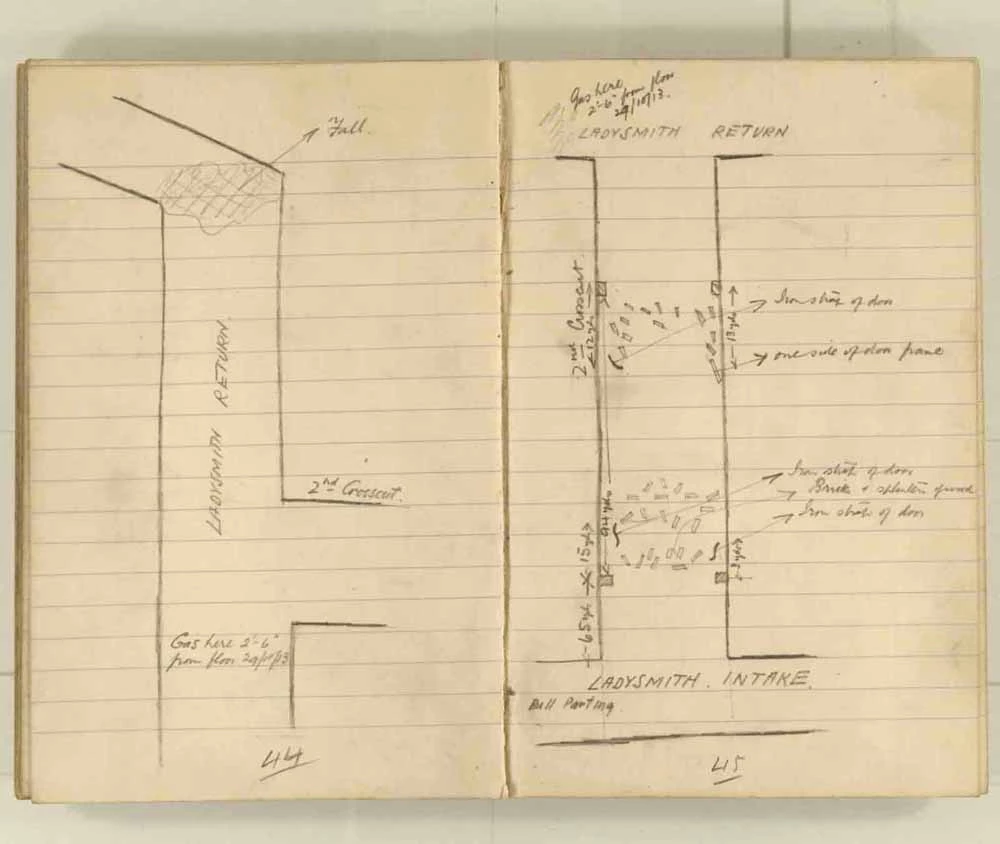 Fall.
LADYSMITH RETURN.
2nd Crosscut.
Gas here 2'-6"
from floor 29/10/13
44
Gas here
2'-6" from floor
29/10/13.
LADYSMITH RETURN
2nd Crosscut.
12yds
13yds
Iron strap of door
one side of door frame
Iron strap of door
Bricks & splinters of wood
Iron strap of door
15yds
65yds
LADYSMITH. INTAKE.
Bull Parting
45